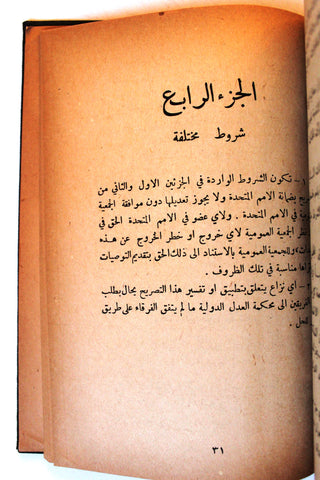 الجزء الرابع
شروط مختلفة
١ — تكون الشروط الواردة في الجزئين الاول والثاني من
بضمانة الامم المتحدة ولا يجوز تعديلها دون موافقة الجمعية
في الامم المتحدة . ولاي عضو في الامم المتحدة الحق في
نظر الجمعية العمومية لاي خروج او خطر الخروج عن هذه
وللجمعية العمومية بالاستناد الى ذلك الحق بتقديم التوصيات
مناسبة في تلك الظروف .
— اي نزاع يتعلق بتطبيق او تفسير هذا التصريح يحال بطلب
الى محكمة العدل الدولية ما لم يتفق الفرقاء على طريق
للحل .
٣١